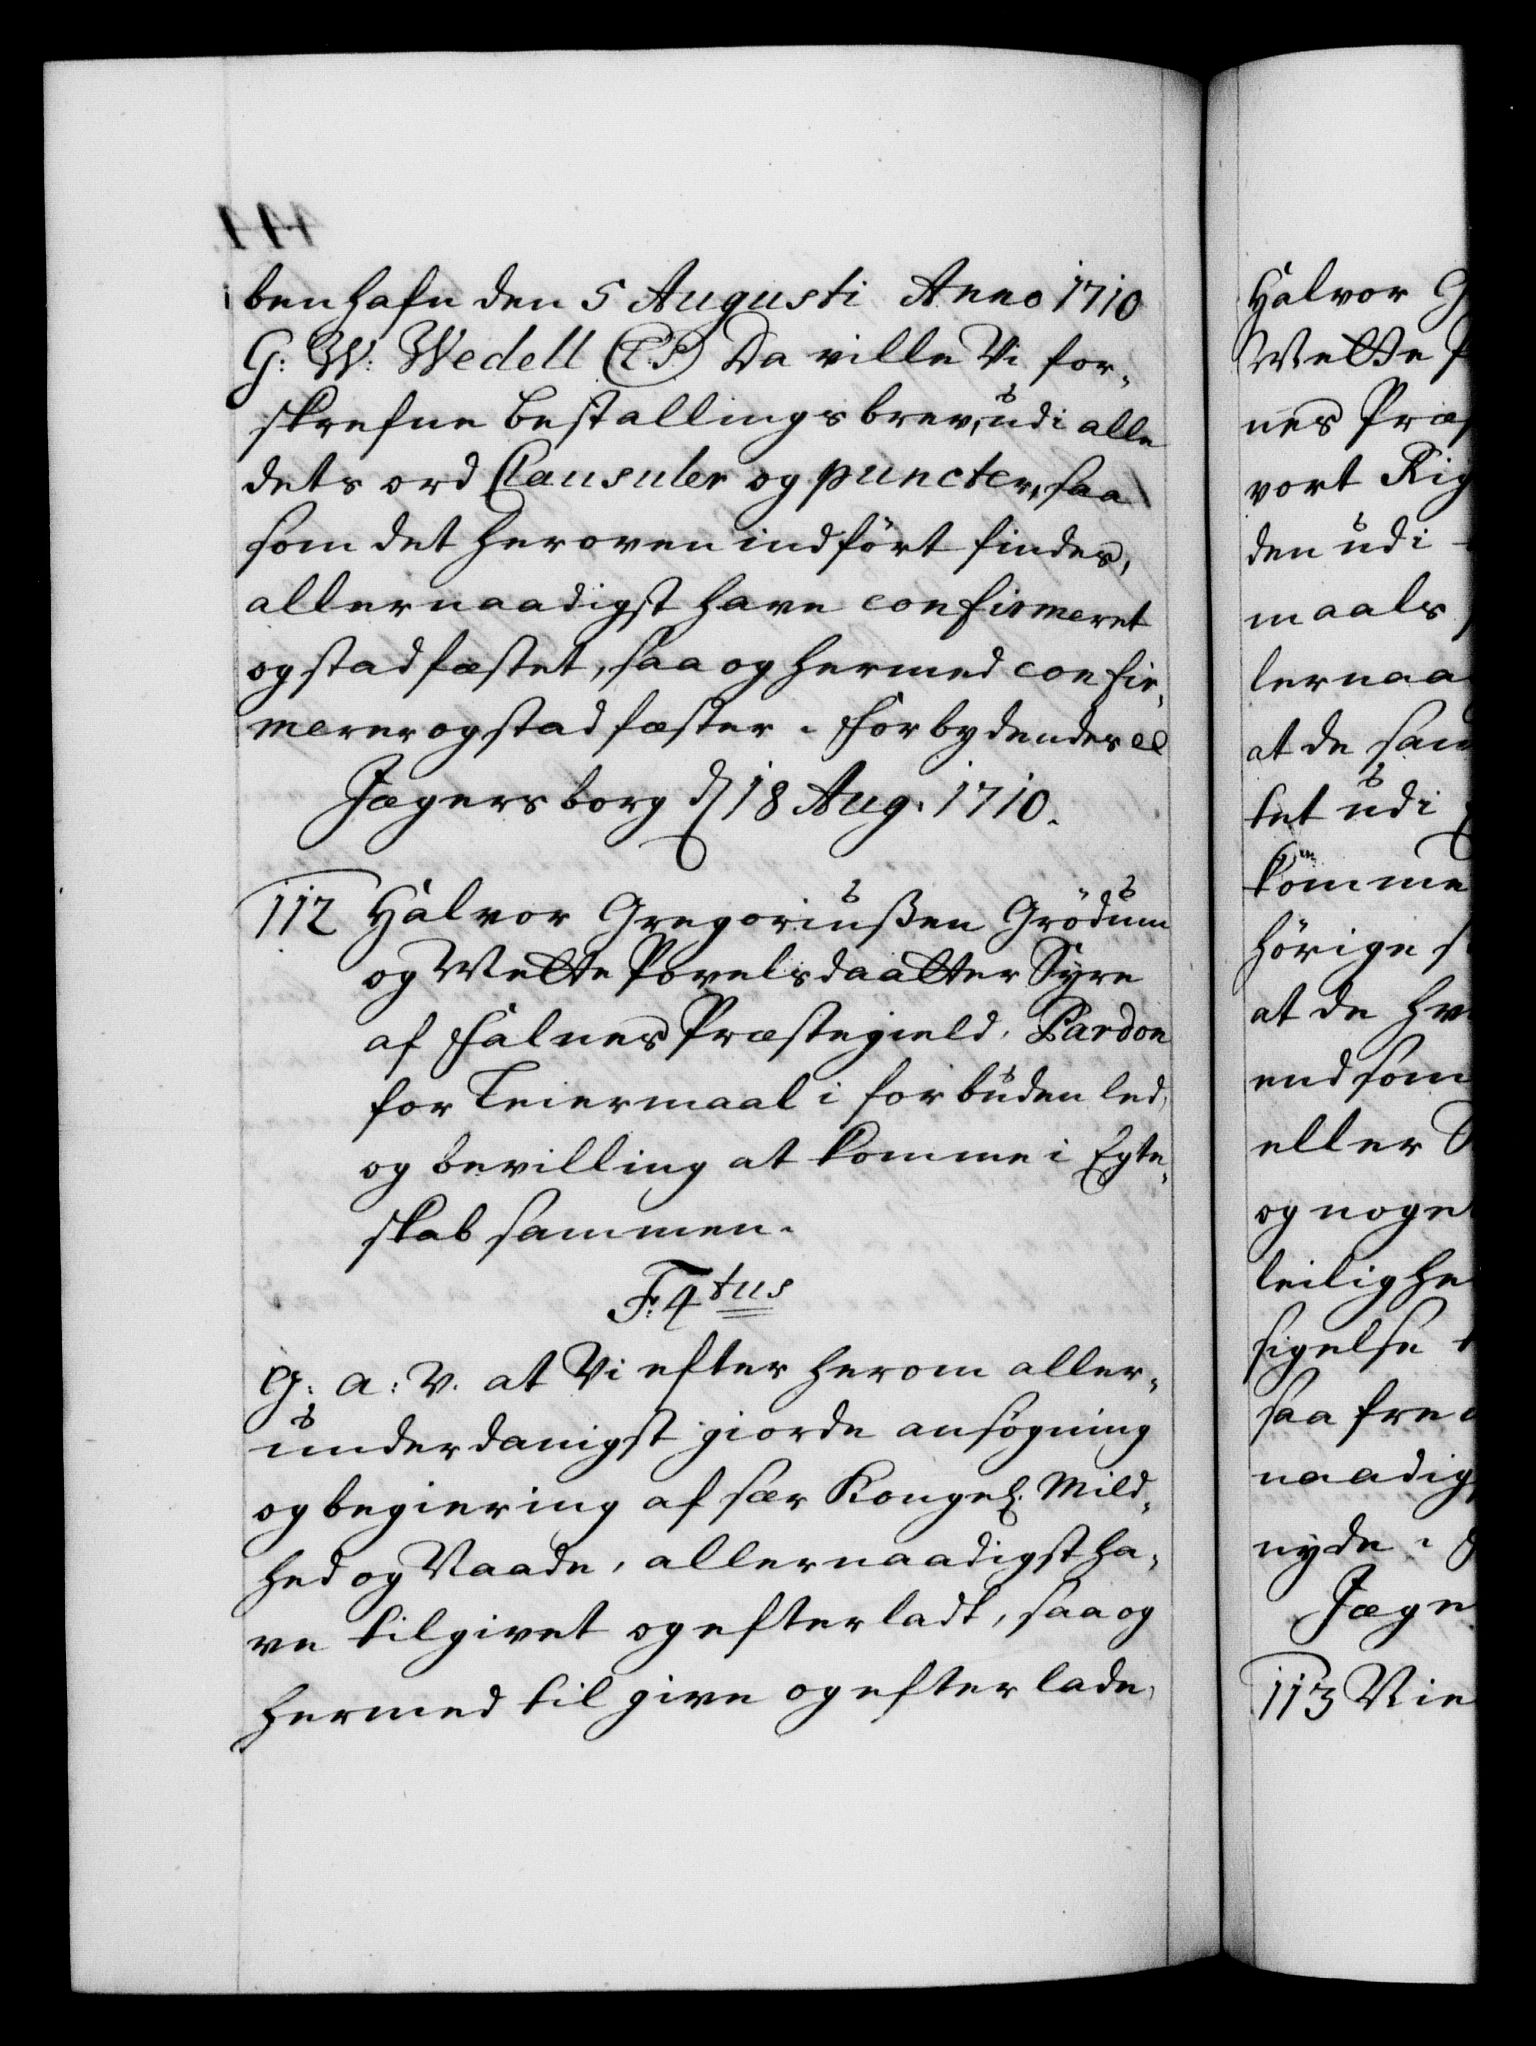 benhafn den 5 Augusti Anno 1710
G: W: Wedell (LS) Da ville Vi for-
skrefne bestallingsbrev, udi alle
dets ord Clausuler og puncter, saa
som det heroven indført findes,
allernaadigst have confirmeret
og stadfæstet, saa og hermed confir-
merer og stadfæster. Forbydendes etc
Jægersborg d 18 Aug. 1710.
112 Halvor Gregoriußen Grødum
og Mette Povelsdaatter Syre
af Falnes Præstegield, Pardon
for Leiermaal i forbuden led,
og bevilling at komme i Egte-
skab sammen.
F. 4tus
G: a: V. at Vi efter herom aller-
underdanigst giorde ansøgning
og begiering af sær Kongel. Mild-
hed og Naade, allernaadigst ha-
ve tilgivet og efterladt, saa og
hermed tilgive og efterlade,
Halvor G
Mette P
nes Præs
vort Rig
den udi
maals
lernaa
at de sam
tet udi
komme
hørige
at de hv
end som
eller S
og noge
leilighe
sigelse
saa frem
naadig
nyde.
Jæge
113 Nie